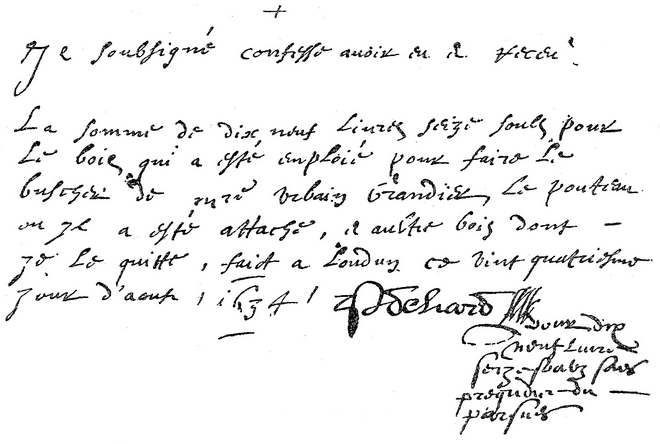 Je soubsigné confesse avoir eu et receu
La somme de dix neuf livres seize soulz pour
Le bois qui a esté emploié pour faire Le
buscher de mre Urbain Grandier, Le pouteau
ou yl a esté attaché, et aultre bois dont
je Le quitte, faict a Loudun ce vint quatriesme
jour d'aout 1634
Dehard
pour dix
neuf Livres
seize soulz sans
prejudice du
parsus